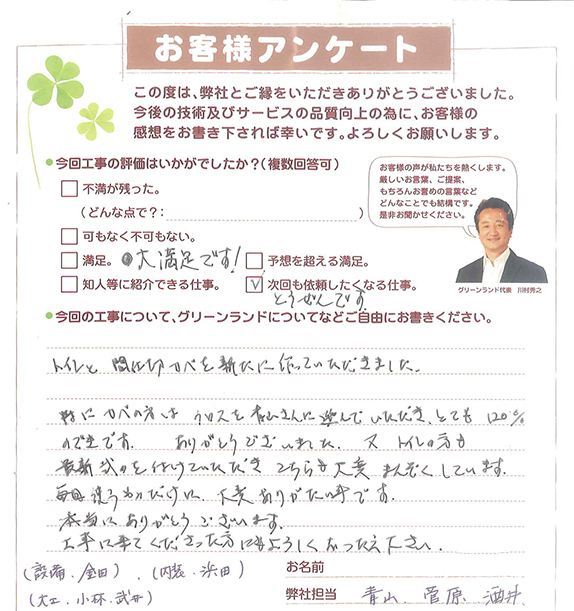 お客様アンケート
この度は、弊社とご縁をいただきありがとうございました。
今後の技術及びサービスの品質向上の為に、お客様の
感想をお書き下されば幸いです。よろしくお願いします。
今回工事の評価はいかがでしたか？（複数回答可）
不満が残った。
（どんな点で？：）
可もなく不可もない。
満足。大満足です！
予想を超える満足。
知人等に紹介できる仕事。
次回も依頼したくなる仕事。
とうぜんです
お客様の声が私たちを熱くします。
厳しいお言葉、ご提案、
もちろんお誉めの言葉など
どんなことでも結構です。
是非お聞かせください。
グリーンランド代表 川村秀之
今回の工事について、グリーンランドについてなどご自由にお書きください。
トイレと間仕切カベを新たに作っていただきました。
特にカベの方はクロスを青山さんに選んでいただき、とても120%
のでき です。ありがとうございました。又トイレの方も
最新式のを付けていただきこちらも大変まんぞくしています。
毎日使うものだけに、大変ありがたい事です。
本当にありがとうございます。
工事に来てくださった方にもよろしくおつたえ下さい。
（設備、金田）、（内装、浜田）
（大工、小林、武井）
お名前
弊社担当 青山、菅原、酒井